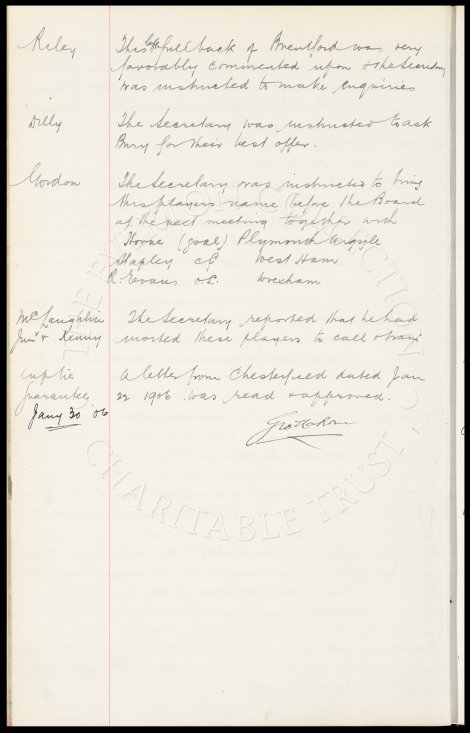 Riley This left full back of Brentford was very
favorably commented upon & the Secretary
was instructed to make enquiries
Dilly The Secretary was instructed to ask
Bury for their best offer.
Gordon The Secretary was instructed to bring
this players name before the Board
at the next meeting together with
Horne (goal) Plymouth Argyle
Stapley c.h West Ham
R. Evans o.l. Wrexham
McLaughlin The Secretary reported that he had
Junr & Kenny invited these players to call & train
Cup tie A letter from Chesterfield dated Jan
guarantee 22 1906 was read & approved.
Jany 30 06
CHARITABLE TRUST